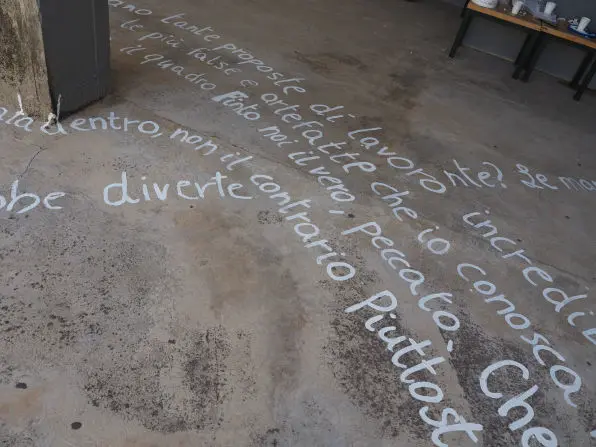 ano tante proposte di lavoro
nte? Le man
le più false e artefatte che io conosca
incredib
il quadro. Finto noi il vero, peccato! Che
ata dentro, non il contrario. Piuttost
bbe diverte